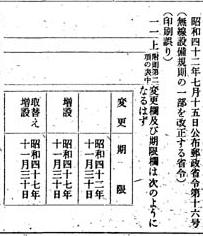 昭和四十二年七月十五日公布郵政省令第十六号
（無線設備規則の一部を改正する省令）
（印刷誤り）
一一上 附則第二項の表中 変更欄及び期限欄は次のように
なるはず。
変更 期限
増設 昭和四十二年十一月三十日
取替え増設 昭和四十七年十一月三十日
昭和四十七年十一月三十日